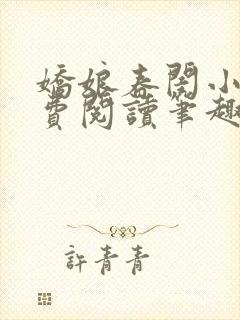 嬌娘春閨小
費閱讀筆趣
許青青